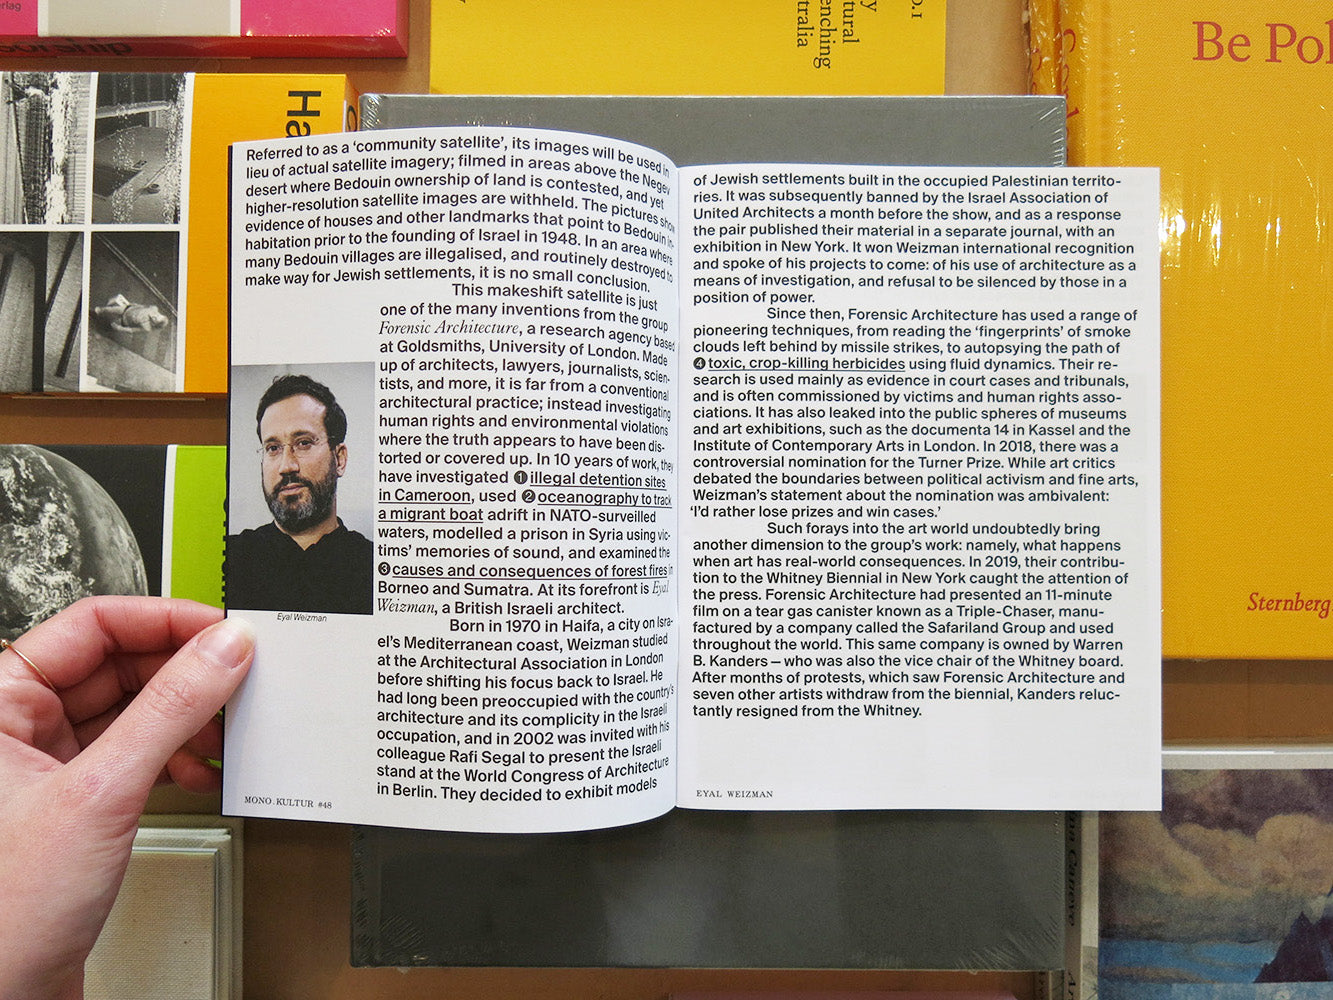 Referred to as a ‘community satellite’, its images will be used in
lieu of actual satellite imagery; filmed in areas above the Negev
desert where Bedouin ownership of land is contested, and yet
higher-resolution satellite images are withheld. The pictures show
evidence of houses and other landmarks that point to Bedouin in-
habitation prior to the founding of Israel in 1948. In an area where
many Bedouin villages are illegalised, and routinely destroyed to
make way for Jewish settlements, it is no small conclusion.
This makeshift satellite is just
one of the many inventions from the group
Forensic Architecture, a research agency based
at Goldsmiths, University of London. Made
up of architects, lawyers, journalists, scien-
tists, and more, it is far from a conventional
architectural practice; instead investigating
human rights and environmental violations
where the truth appears to have been dis-
torted or covered up. In 10 years of work, they
have investigated ❶ illegal detention sites
in Cameroon, used ❷ oceanography to track
a migrant boat adrift in NATO-surveilled
waters, modelled a prison in Syria using vic-
tims’ memories of sound, and examined the
❸ causes and consequences of forest fires in
Borneo and Sumatra. At its forefront is Eyal
Weizman, a British Israeli architect.
Born in 1970 in Haifa, a city on Isra-
el’s Mediterranean coast, Weizman studied
at the Architectural Association in London
before shifting his focus back to Israel. He
had long been preoccupied with the country’s
architecture and its complicity in the Israeli
occupation, and in 2002 was invited with his
colleague Rafi Segal to present the Israeli
stand at the World Congress of Architecture
in Berlin. They decided to exhibit models
Eyal Weizman
MONO.KULTUR #48
of Jewish settlements built in the occupied Palestinian territo-
ries. It was subsequently banned by the Israel Association of
United Architects a month before the show, and as a response
the pair published their material in a separate journal, with an
exhibition in New York. It won Weizman international recognition
and spoke of his projects to come: of his use of architecture as a
means of investigation, and refusal to be silenced by those in a
position of power.
Since then, Forensic Architecture has used a range of
pioneering techniques, from reading the ‘fingerprints’ of smoke
clouds left behind by missile strikes, to autopsying the path of
❹ toxic, crop-killing herbicides using fluid dynamics. Their re-
search is used mainly as evidence in court cases and tribunals,
and is often commissioned by victims and human rights asso-
ciations. It has also leaked into the public spheres of museums
and art exhibitions, such as the documenta 14 in Kassel and the
Institute of Contemporary Arts in London. In 2018, there was a
controversial nomination for the Turner Prize. While art critics
debated the boundaries between political activism and fine arts,
Weizman’s statement about the nomination was ambivalent:
‘I’d rather lose prizes and win cases.’
Such forays into the art world undoubtedly bring
another dimension to the group’s work: namely, what happens
when art has real-world consequences. In 2019, their contribu-
tion to the Whitney Biennial in New York caught the attention of
the press. Forensic Architecture had presented an 11-minute
film on a tear gas canister known as a Triple-Chaser, manu-
factured by a company called the Safariland Group and used
throughout the world. This same company is owned by Warren
B. Kanders – who was also the vice chair of the Whitney board.
After months of protests, which saw Forensic Architecture and
seven other artists withdraw from the biennial, Kanders reluc-
tantly resigned from the Whitney.
EYAL WEIZMAN
Be Pol
Sternberg
Ha